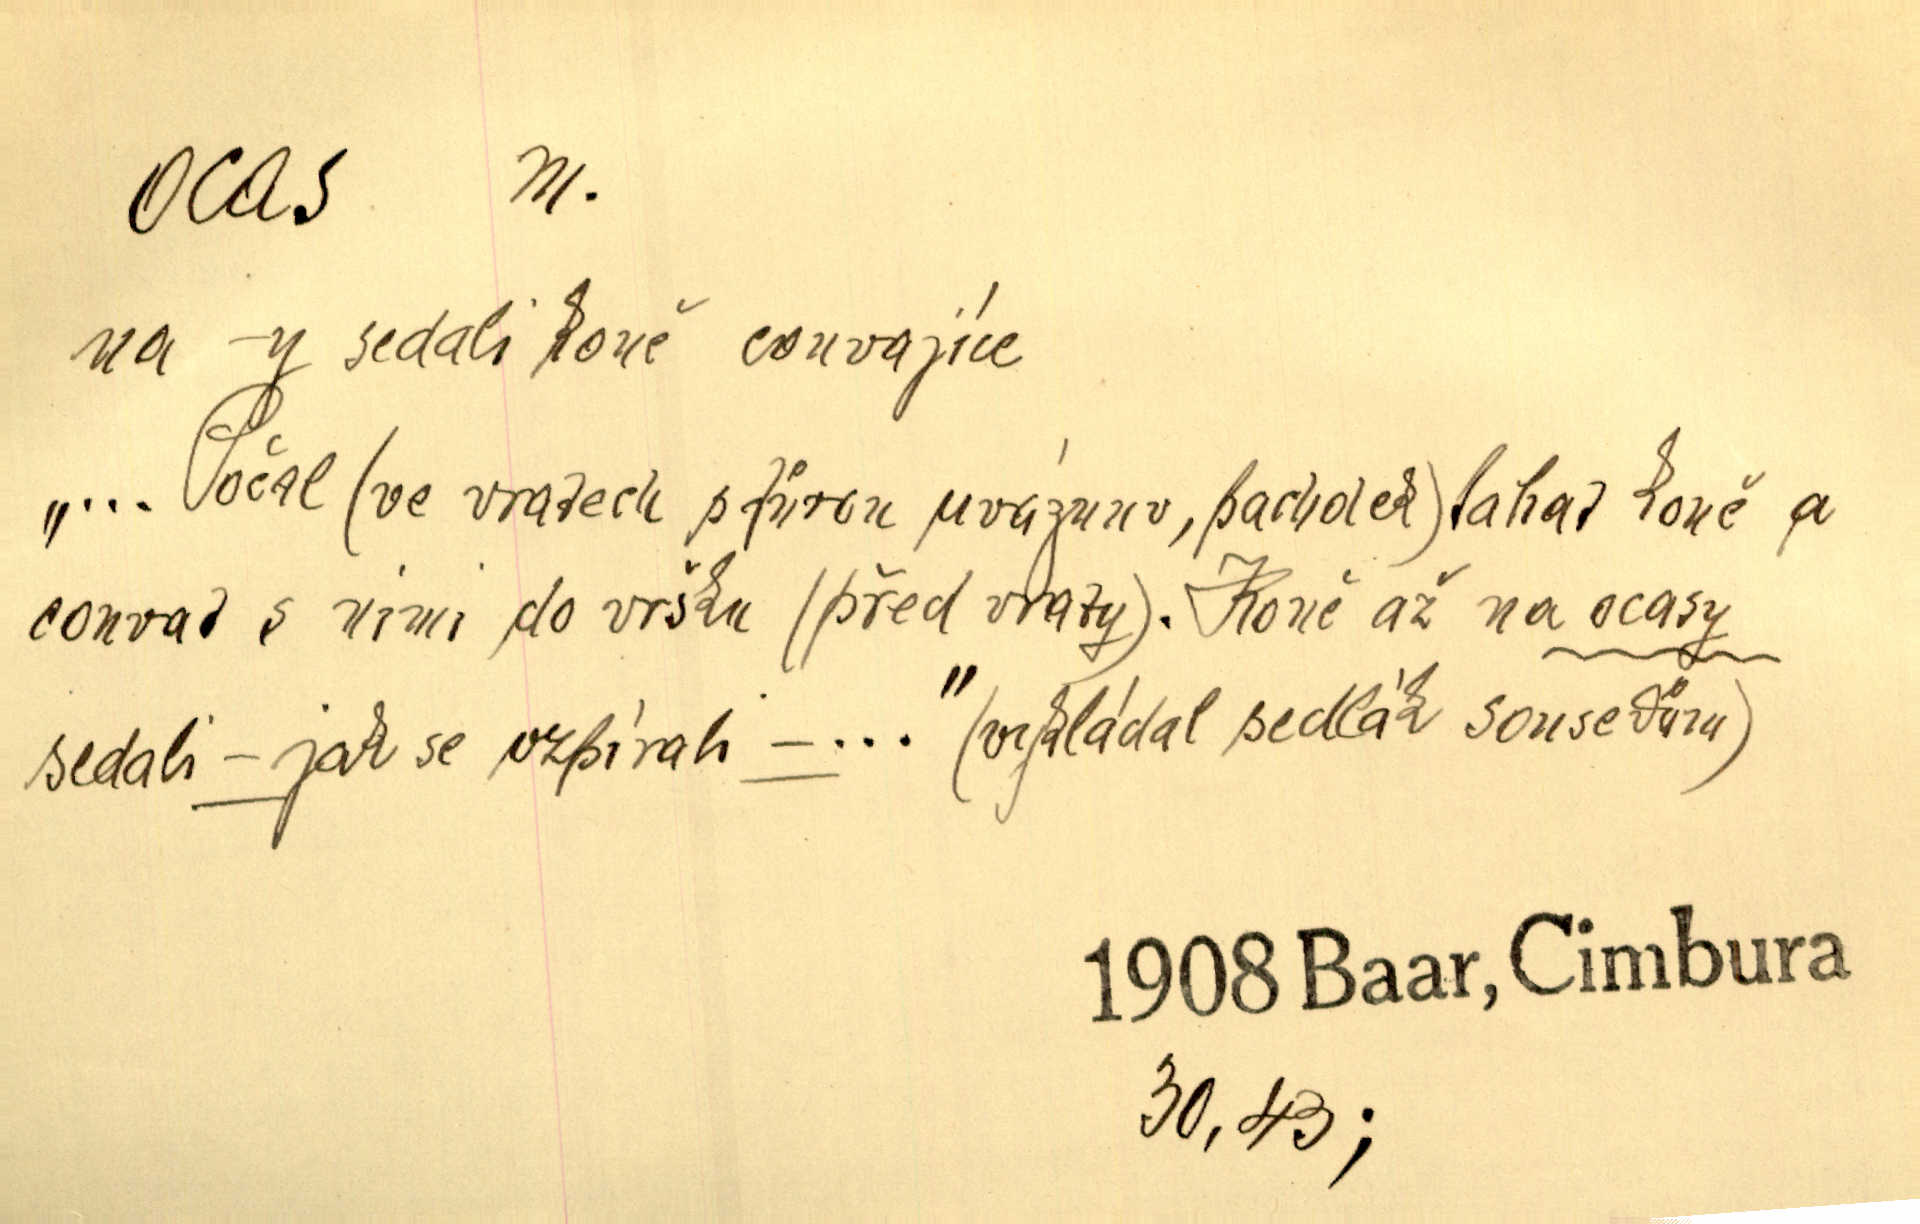 ocas m.
na -y sedali koně couvajíce
„... Počal (ve vratech s fůrou uváznuv, pacholek) tahat koně a
couvat s nimi do vršku (před vraty). Koně až na ocasy
sedali – jak se vzpírali – ..." (vykládal sedlák sousedům)
1908 Baar, Cimbura
30, 43;